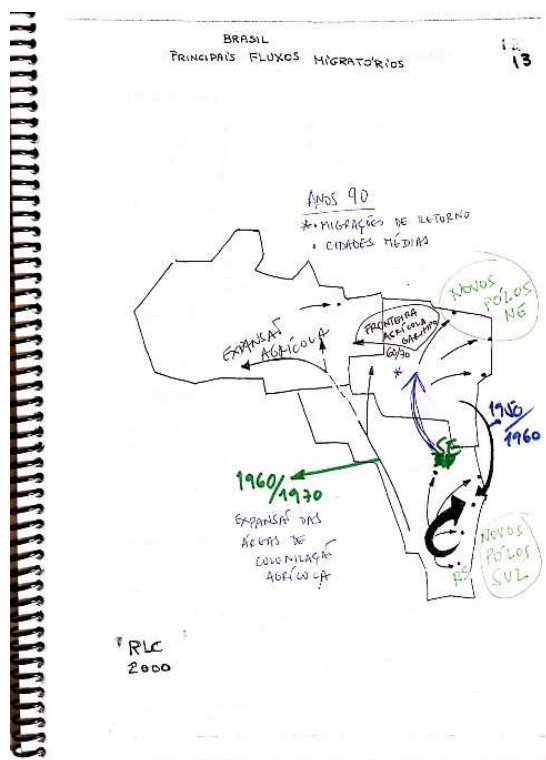 BRASIL
PRINCIPAIS FLUXOS MIGRATÓRIOS
13
ANOS 90
* • MIGRAÇÕES DE RETORNO
• CIDADES MÉDIAS
NOVOS
PÓLOS
NE
FRONTEIRA
AGRÍCOLA
GARIMPO
60/70
EXPANSÃO
AGRÍCOLA
*
1950/
1960
SE
1960/
1970
EXPANSÃO DAS
ÁREAS DE
COLONIZAÇÃO
AGRÍCOLA
NOVOS
PÓLOS
SUL
RS
RLC
2000